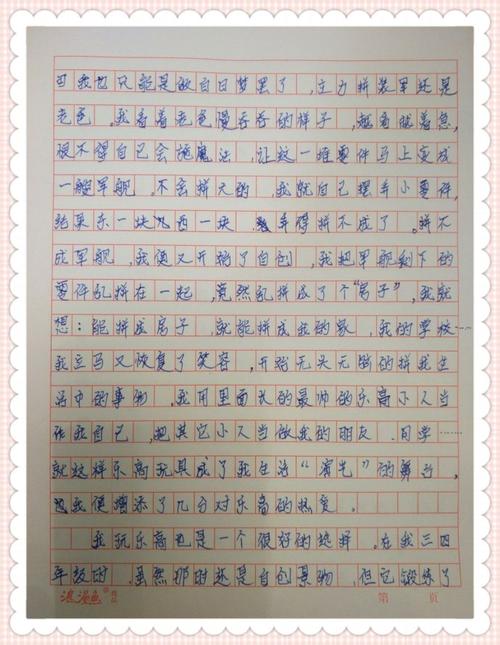 可我也只能是做白日梦罢了,主力拼装军还是
老爸。我看着老爸慢吞吞的样子,越看越着急,
恨不得自己会施魔法,让这一堆零件马上变成
一艘军舰。不会拼大的,我就自己摆弄小零件,
结果东一块儿西一块,弄得拼不成了。拼不
成军舰,我便又开始了自创,我把军舰剩下的
零件乱拼在一起,竟然乱拼成了个“房子”,我就
想:能拼成房子,就能拼成我的家,我的学校……
我立马又恢复了笑容,开始无头无脑的拼我生
活中的事物,我用里面长的最帅的乐高小人当
作我自己,把其它小人当做我的朋友、同学……
就这样乐高玩具成了我生活“演艺”的舞台,
我便增添了几分对乐高的热爱。
我玩乐高也是一个很好的选择。在我三四
年级时,虽然那时还是自创景物,但它锻炼了
浪漫鱼
第 页